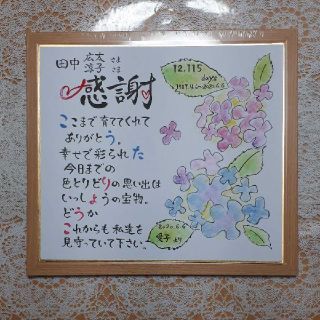 田中 広太 さま
涼子 さま
感謝
ここまで育ててくれて
ありがとう。
幸せで彩られた
今日までの
色とりどりの思い出は
いっしょうの宝物。
どうか
これからも私達を
見守っていて下さい。
12,115
days
2020.6.6
愛子 より